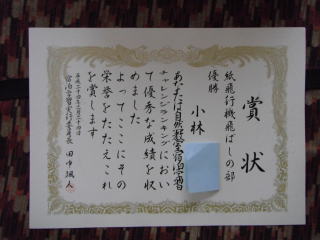 賞状
紙飛行機飛ばしの部
優勝
小林
あなたは自然教室宿泊学習
チャレンジランキングにおい
て優秀な成績を収
めました
よってここにその
栄誉をたたえこれ
を賞します
平成二十四年二月二十四日
宿泊学習実行委員長 田中颯人